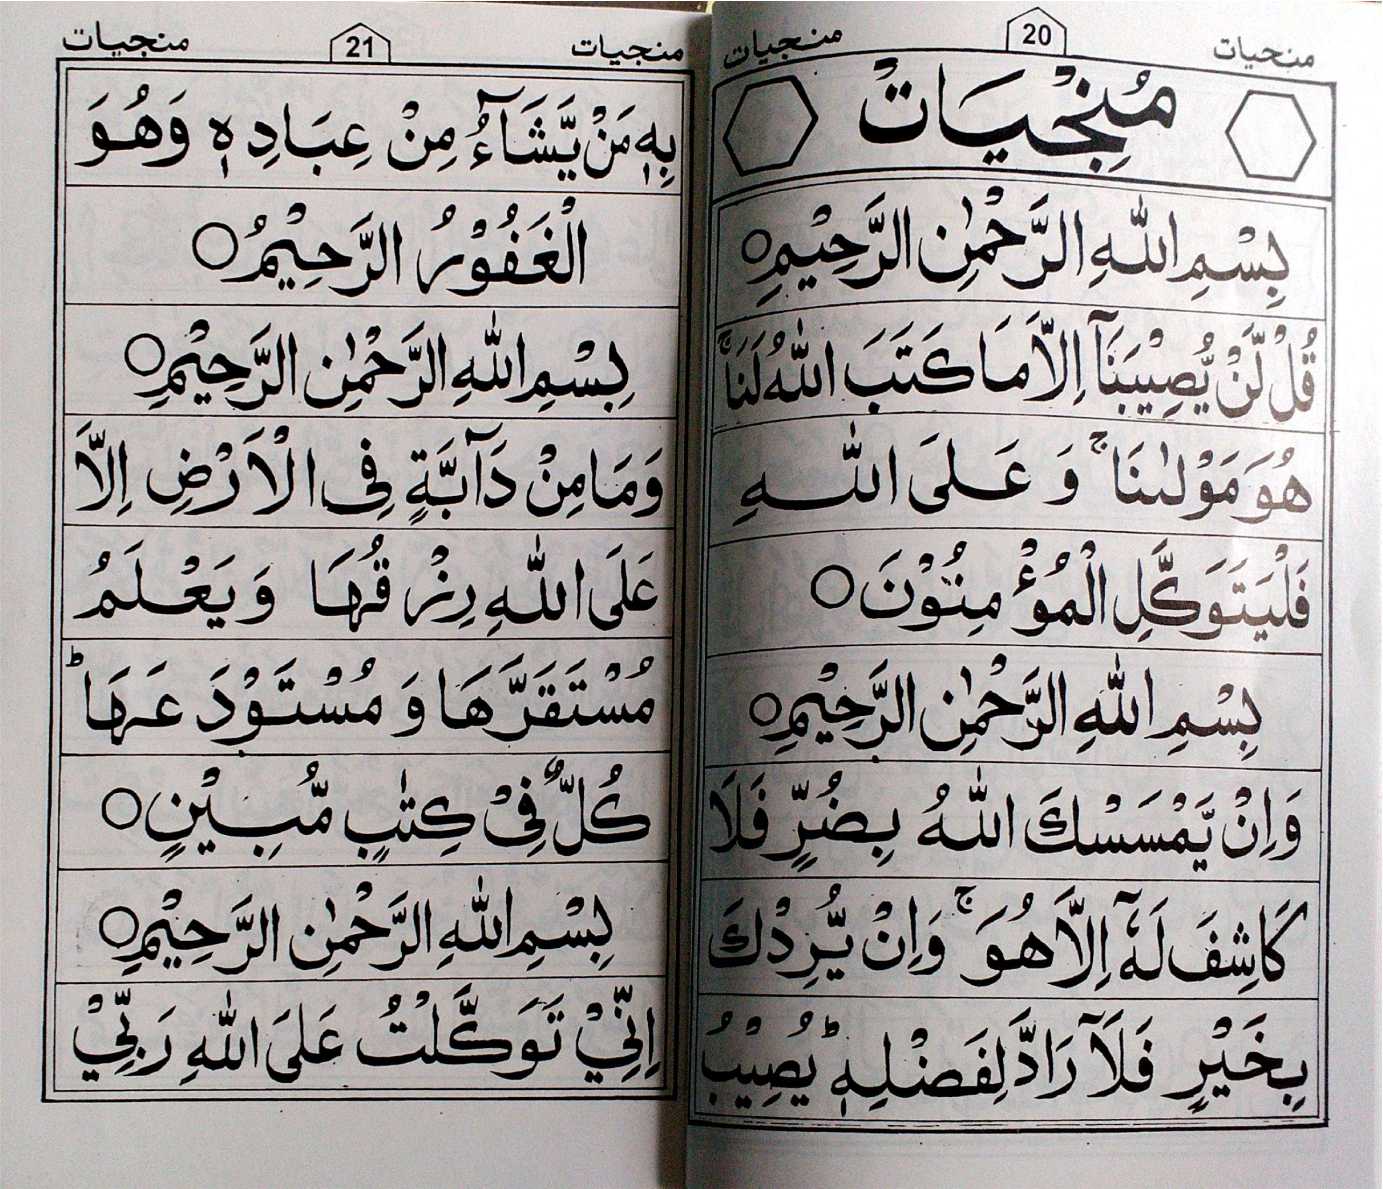 منجيات 20 منجيات
مُنْجِيَاتْ
بِسْمِ اللّٰهِ الرَّحْمٰنِ الرَّحِيْمِ○
قُلْ لَّنْ يُّصِيْبَنَآ اِلَّا مَا كَتَبَ اللّٰهُ لَنَا ۚ
هُوَ مَوْلٰىنَا ۚ وَ عَلَى اللّٰهِ
فَلْيَتَوَكَّلِ الْمُؤْمِنُوْنَ○
بِسْمِ اللّٰهِ الرَّحْمٰنِ الرَّحِيْمِ○
وَاِنْ يَّمْسَسْكَ اللّٰهُ بِضُرٍّ فَلَا
كَاشِفَ لَهٗٓ اِلَّا هُوَ ۚ وَاِنْ يُّرِدْكَ
بِخَيْرٍ فَلَآ رَادَّ لِفَضْلِهٖ ؕ يُصِيْبُ
منجيات 21 منجيات
بِهٖ مَنْ يَّشَآءُ مِنْ عِبَادِهٖ وَهُوَ
الْغَفُوْرُ الرَّحِيْمُ○
بِسْمِ اللّٰهِ الرَّحْمٰنِ الرَّحِيْمِ○
وَمَا مِنْ دَآبَّةٍ فِى الْاَرْضِ اِلَّا
عَلَى اللّٰهِ رِزْقُهَا وَيَعْلَمُ
مُسْتَقَرَّهَا وَ مُسْتَوْدَعَهَا ؕ
كُلٌّ فِىْ كِتٰبٍ مُّبِيْنٍ○
بِسْمِ اللّٰهِ الرَّحْمٰنِ الرَّحِيْمِ○
اِنِّيْ تَوَكَّلْتُ عَلَى اللّٰهِ رَبِّيْ